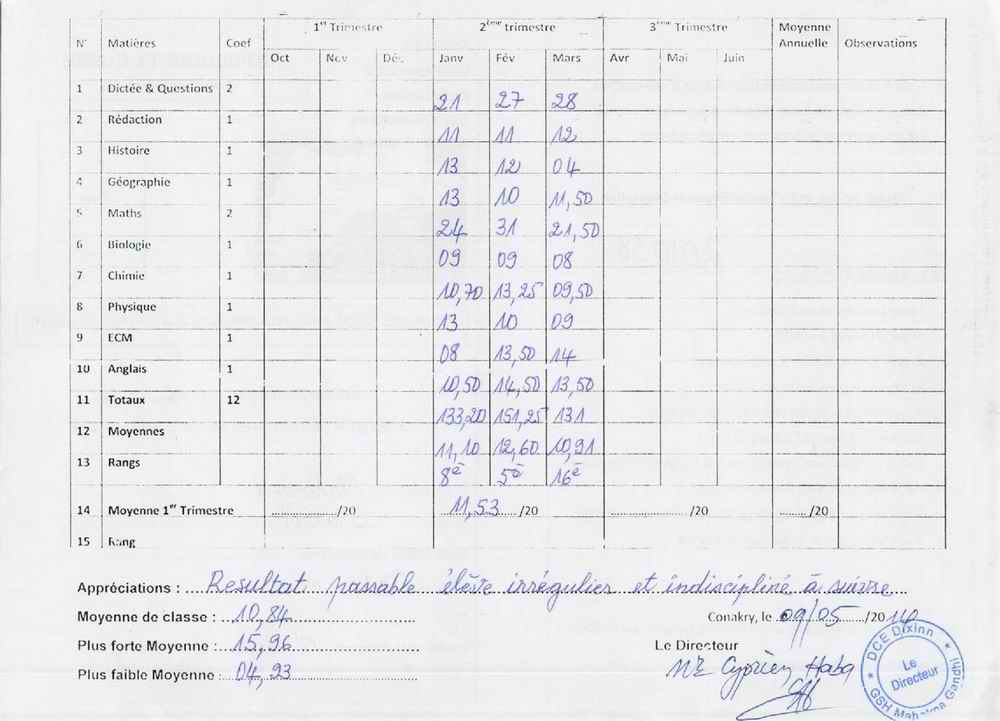 1er Trimestre 2ème trimestre 3ème Trimestre Moyenne Annuelle
N° Matières Coef Oct Nov Déc. Janv Fév Mars Avr Mai Juin Observations
1 Dictée & Questions 2 21 27 28
2 Rédaction 1 11 11 12
3 Histoire 1 13 12 04
4 Géographie 1 13 10 11,50
5 Maths 2 24 31 21,50
6 Biologie 1 09 09 08
7 Chimie 1 10,70 13,25 09,50
8 Physique 1 13 10 09
9 ECM 1 08 13,50 14
10 Anglais 1 10,50 14,50 13,50
11 Totaux 12 133,20 151,25 131
12 Moyennes 11,10 12,60 10,91
13 Rangs 8è 5è 16è
14 Moyenne 1er Trimestre ............/20 11,53 /20 ............/20 ......../20
15 Rang
Appréciations : Resultat passable élève irrégulier et indiscipliné à suivre
Moyenne de classe : 10,84
Conakry, le 09/05/2014
Plus forte Moyenne : 15,96
Le Directeur
Plus faible Moyenne : 04,93
Cyprien Haba
DCE Dixinn
Le Directeur
GSH Mahatma Gandhi